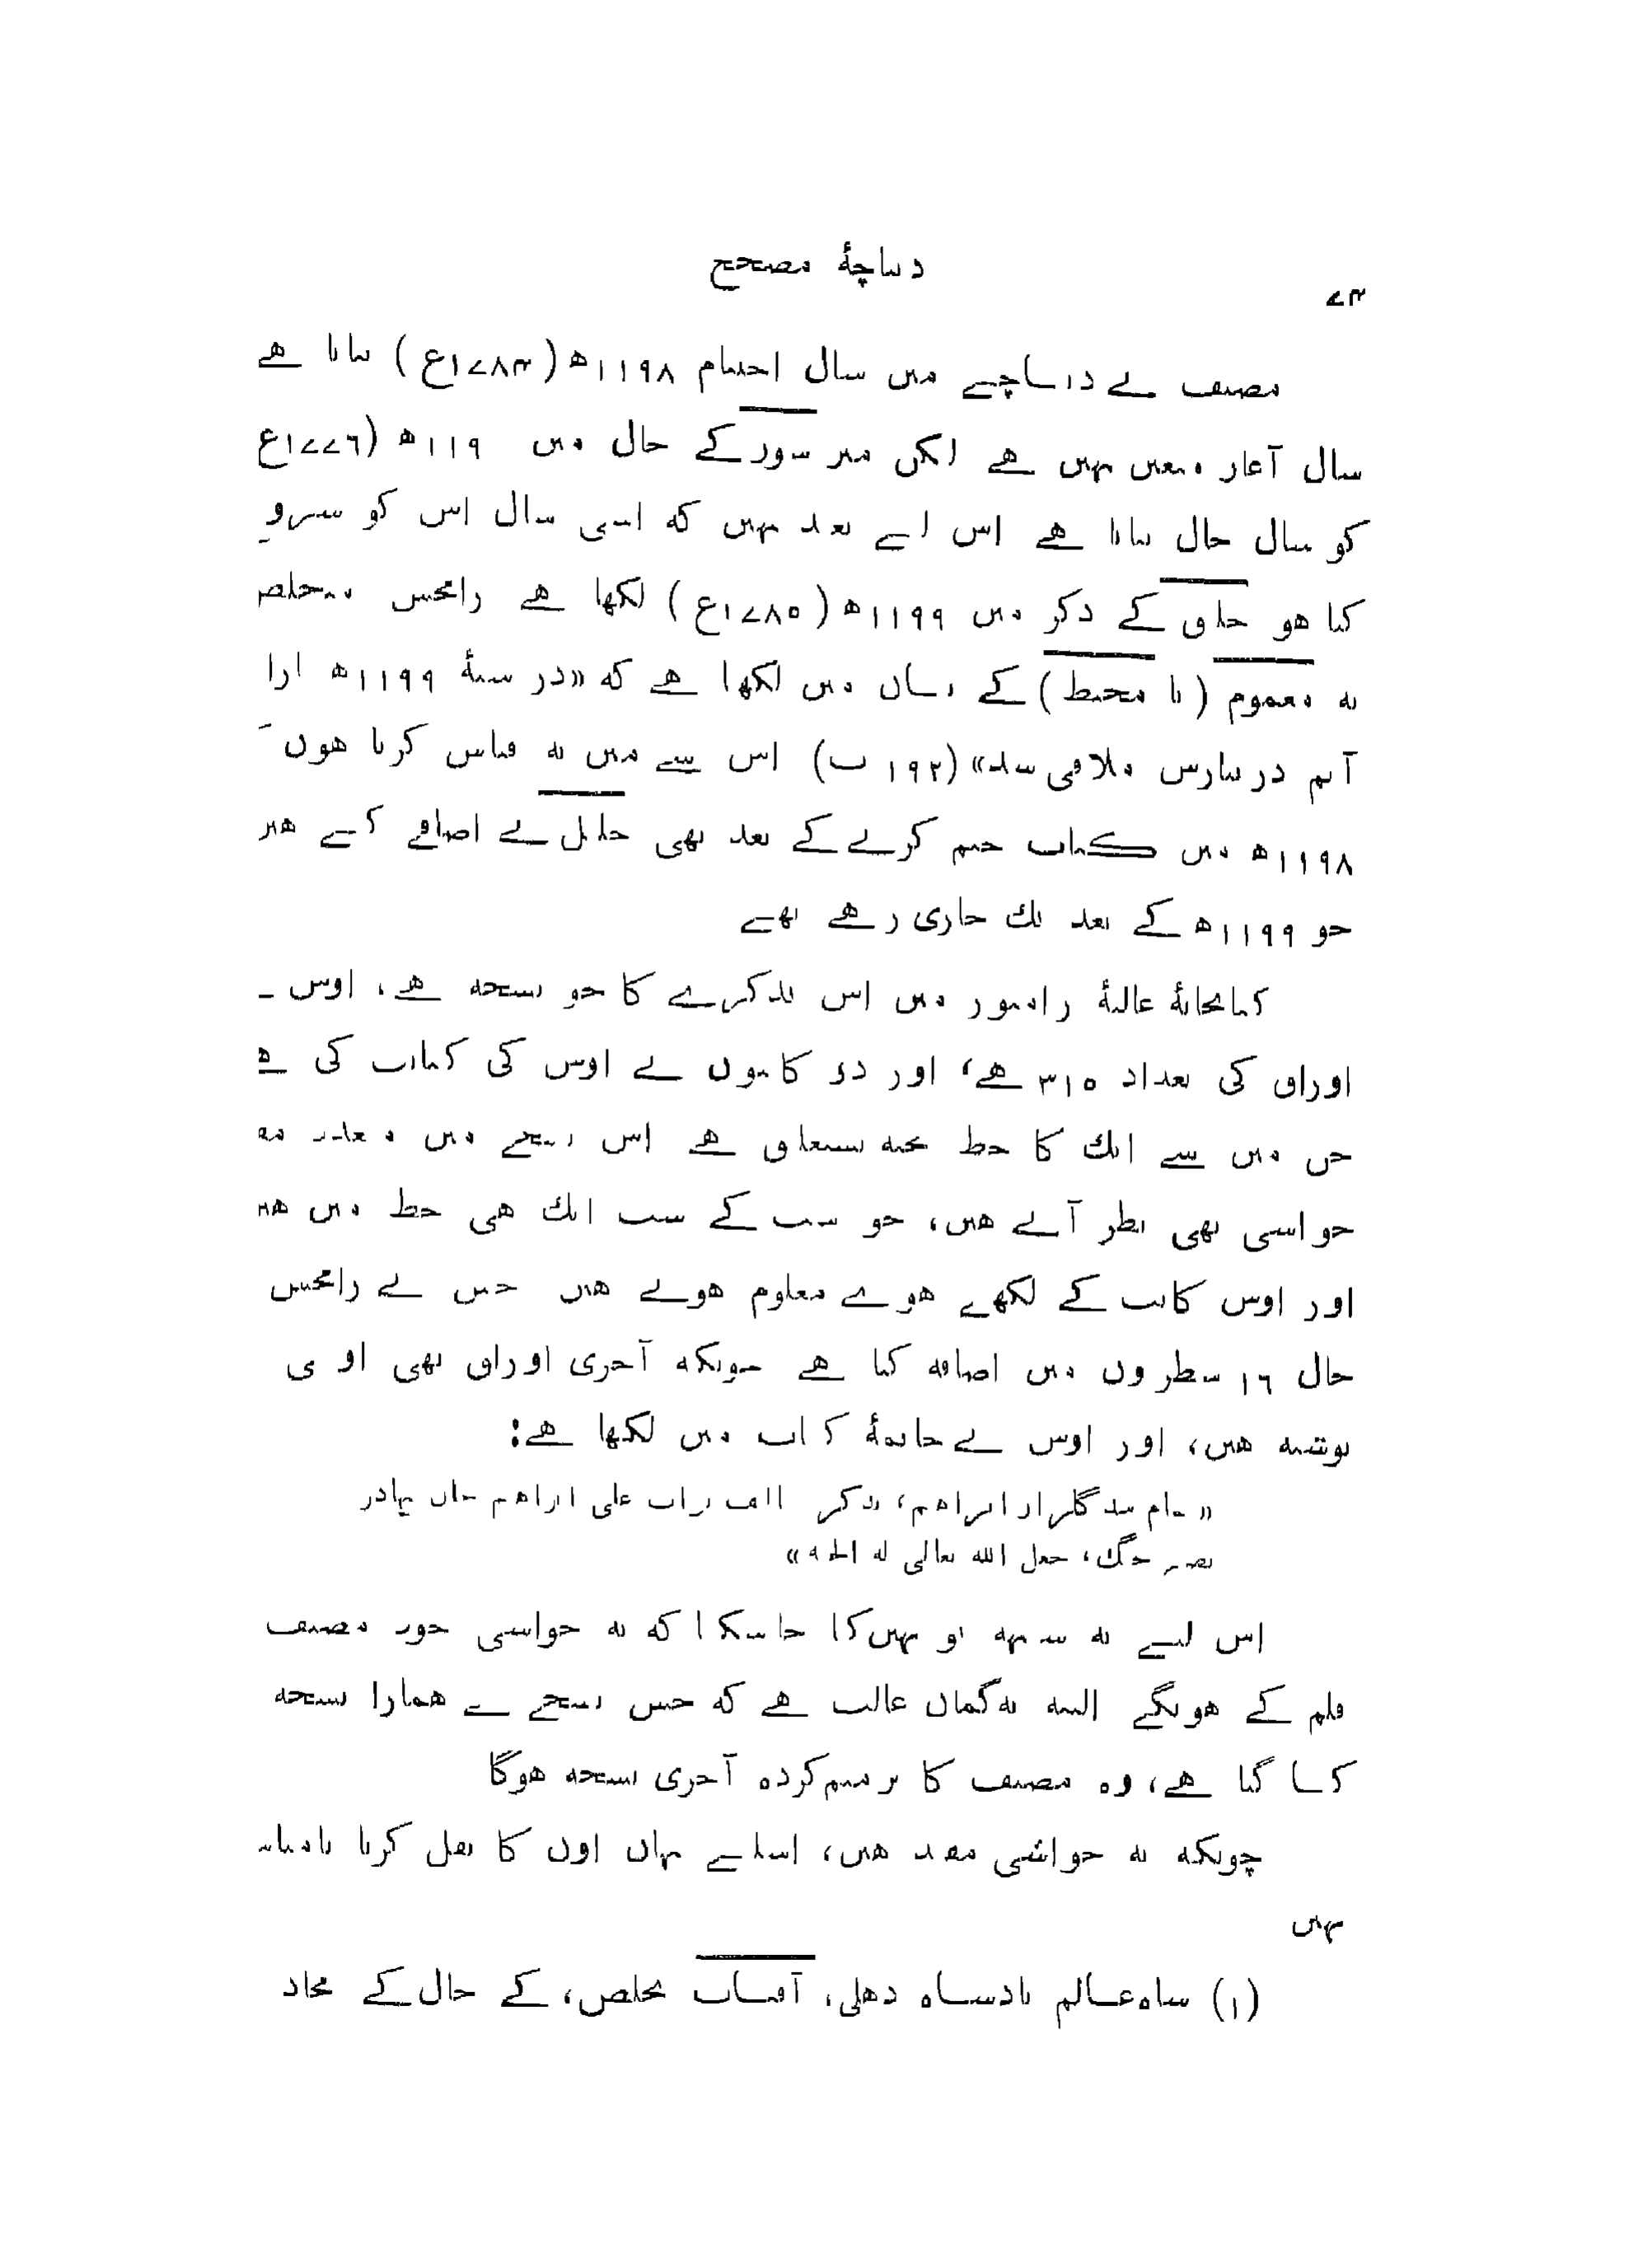 دیباچۂ مصحح
۷۴
مصنف نے دیباچے میں سال اختتام ۱۱۹۸ھ (۱۷۸۴ع) بتایا ہے
سال آغاز معین نہیں ہے لیکن میر سوز کے حال میں ۱۱۹ھ (۱۷۷٦ع
کو سال حال بتایا ہے اس لیے بعید نہیں کہ اسی سال اس کو شروع
کیا ہو خلیق کے ذکر میں ۱۱۹۹ھ (۱۷۸۵ع) لکھا ہے رامجس متخلص
بہ مغموم (یا محیط) کے بیان میں لکھا ہے کہ «در سنۂ ۱۱۹۹ھ ازا
آثم در بنارس ملاقی شد» (۱۹۲ ب) اس سے میں یہ قیاس کرتا ہوں
۱۱۹۸ھ میں کتاب ختم کرنے کے بعد بھی خلیل نے اضافے کیے ہیں
جو ۱۱۹۹ھ کے بعد تک جاری رہے تھے
کتابخانۂ عالیۂ رامپور میں اس تذکرے کا جو نسخہ ہے، اوس
اوراق کی تعداد ۳۱۵ ہے، اور دو کاتبوں نے اوس کی کتابت کی ہے
جن میں سے ایک کا خط پختہ نستعلیق ہے اس نسخے میں متعدد مق
حواشی بھی نظر آتے ہیں، جو سب کے سب ایک ہی خط میں ہیں
اور اوس کاتب کے لکھے ہوے معلوم ہوتے ہیں جس نے رامجس
حال ۱٦ سطروں میں اضافہ کیا ہے چونکہ آخری اوراق بھی اوسی
نوشتہ ہیں، اور اوس نے خاتمۂ کتاب میں لکھا ہے:
«تمام شد گلزار ابراہیم، تذکر الف نواب علی ابراہیم خاں بہادر
نصیر جنگ، جعل اللہ تعالی لہ الجنہ»
اس لیے یہ شبہہ تو نہیں کیا جاسکتا کہ یہ حواشی خود مصنف
قلم کے ہونگے البتہ یہ گمان غالب ہے کہ جس نسخے سے ہمارا نسخہ
کیا گیا ہے، وہ مصنف کا ترمیم کردہ آخری نسخہ ہوگا
چونکہ یہ حواشی مفید ہیں، اسلیے یہاں اون کا نقل کرنا نامناسب
نہیں
(۱) شاہ عالم بادشاہ دہلی، آفتاب تخلص، کے حال کے محاذ